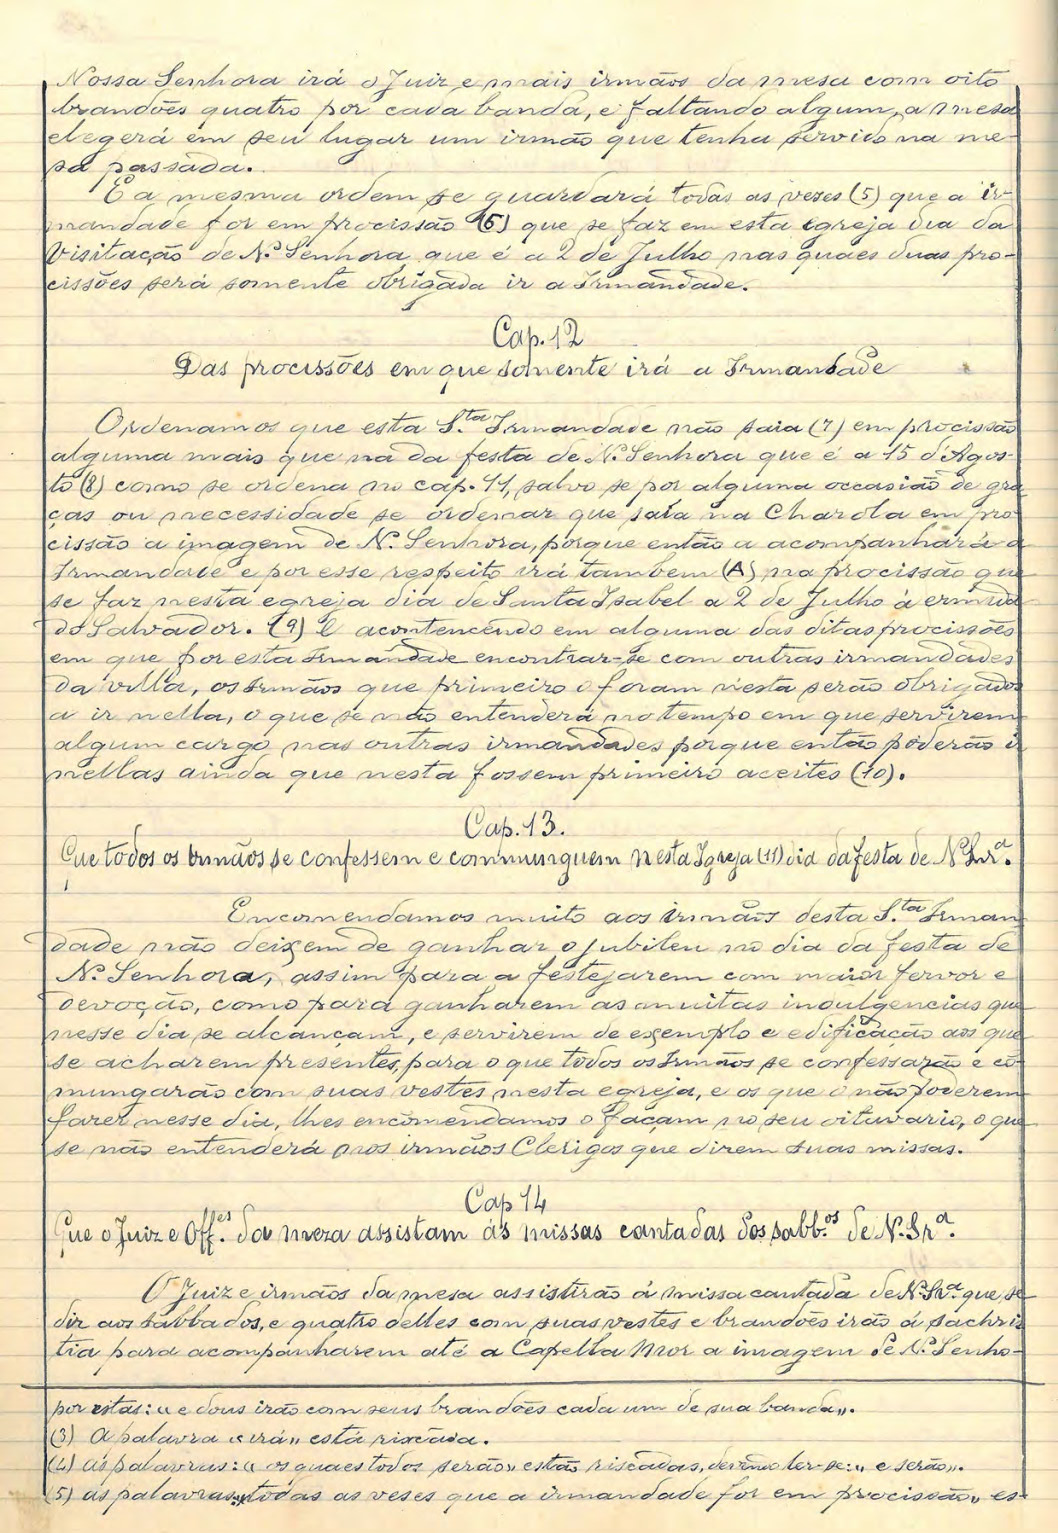 Nossa Senhora irá o Juiz e mais irmãos da mesa com oito
brandões quatro por cada banda, e faltando algum, a mesa
elegerá em seu lugar um irmão que tenha servido na me-
sa passada.
E a mesma ordem se guardará todas as veses (5) que a ir-
mandade for em procissão (6) que se faz em esta egreja dia da
Visitação de N.ª Senhora que é a 2 de Julho nas quaes duas pro-
cissões será somente obrigada ir a Irmandade.
Cap. 12
Das procissões em que somente irá a Irmandade
Ordenamos que esta S.ta Irmandade não saia (7) em procissão
alguma mais que na da festa de N.ª Senhora que é a 15 d'Agos-
to (8) como se ordena no cap. 11, salvo se por alguma occasião de gra-
ças ou necessidade se ordenar que saia na Charola em pro-
cissão a imagem de N. Senhora, porque então a acompanhará a
Irmandade e por esse respeito irá tambem (A) na procissão que
se faz nesta egreja dia de Santa Isabel a 2 de Julho á ermida
do Salvador. (9) E acontencendo em alguma das ditas procissões
em que por esta Irmandade encontrar-se com outras irmandades
da villa, os Irmãos que primeiro o foram nesta serão obrigados
a ir nella, o que se não entenderá no tempo em que servirem
algum cargo nas outras irmandades porque então poderão ir
nellas ainda que nesta fossem primeiro aceites (10).
Cap. 13.
Que todos os Irmãos se confessem e communguem nesta Igreja (11) dia da festa de N.ª Snr.ª
Encomendamos muito aos irmãos desta S.ta Irman-
dade não deixem de ganhar o jubileu no dia da festa de
N.ª Senhora, assim para a festejarem com maior fervor e
devoção, como para ganharem as muitas indulgencias que
nesse dia se alcançam, e servirem de exemplo e edificação aos que
se acharem presentes, para o que todos os Irmãos se confessarão e co-
mungarão com suas vestes nesta egreja, e os que o não poderem
fazer nesse dia, lhes encomendamos o façam no seu oitavario, o que
se não entenderá nos irmãos Clerigos que direm suas missas.
Cap 14
Que o Juiz e Off.es da meza assistam ás missas cantadas dos sabb.os de N. Sr.ª
O Juiz e irmãos da mesa assistirão á missa cantada de N. Sr.ª que se
diz aos sabbados, e quatro delles com suas vestes e brandões irão á sachris-
tia para acompanharem até a Capella Mor a imagem de N.ª Senho-
por estas: «e dous irão com seus brandões cada um de sua banda».
(3) A palavra «irá» está riscada.
(4) as palavras: «os quaes todos serão» estão riscadas, devendo ler-se: «e serão».
(5) as palavras «todas as veses que a irmandade for em procissão» es-